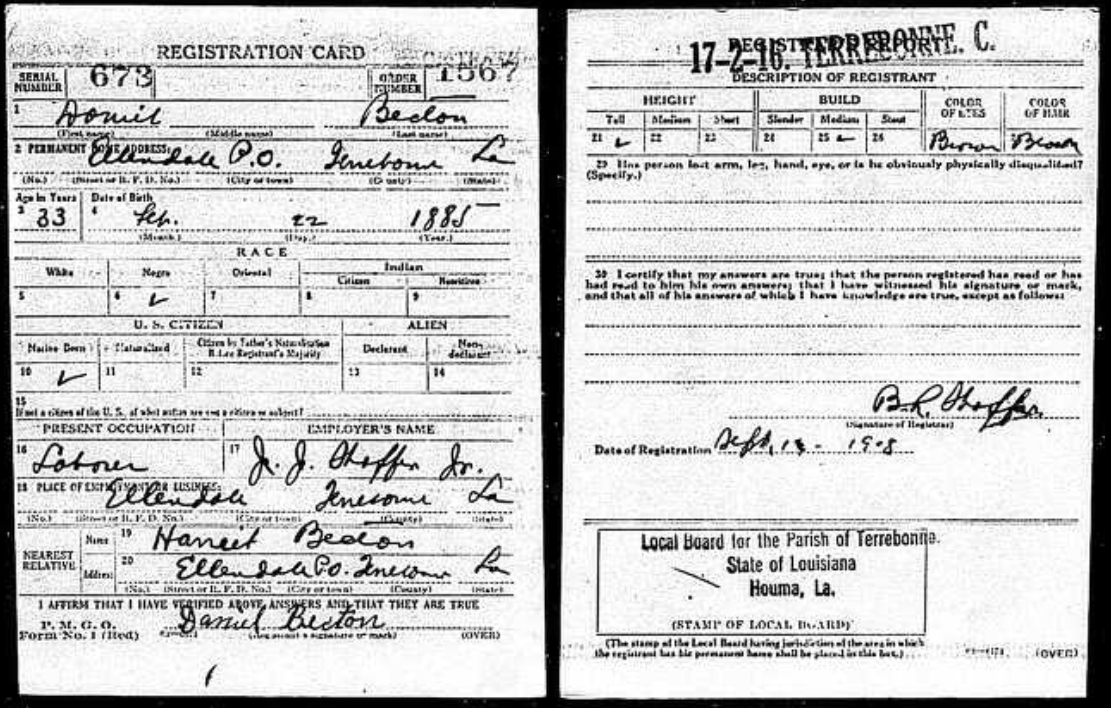 REGISTRATION CARD
SERIAL NUMBER 673 ORDER NUMBER 1567
1 Daniel Becton
(First name) (Middle name) (Last name)
2 PERMANENT HOME ADDRESS:
Ellendale P.O. Terrebonne La
(No.) (Street or R. F. D. No.) (City or town) (County) (State)
Age in Years Date of Birth
3 33 4 Sep. 22 1885
(Month.) (Day.) (Year.)
RACE
White Negro Oriental Indian
Citizen Noncitizen
5 6 ✓ 7 8 9
U. S. CITIZEN ALIEN
Native Born Naturalized Citizen by Father's Naturalization Before Registrant's Majority Declarant Non-declarant
10 ✓ 11 12 13 14
15
If not a citizen of the U. S., of what nation are you a citizen or subject?
PRESENT OCCUPATION EMPLOYER'S NAME
16 Laborer 17 J. J. Shaffer Jr.
18 PLACE OF EMPLOYMENT OR BUSINESS:
Ellendale Terrebonne La
(No.) (Street or R. F. D. No.) (City or town) (County) (State)
NEAREST RELATIVE
Name 19 Harriet Becton
Address 20 Ellendale P.O. Terrebonne La
(No.) (Street or R. F. D. No.) (City or town) (County) (State)
I AFFIRM THAT I HAVE VERIFIED ABOVE ANSWERS AND THAT THEY ARE TRUE
P. M. G. O.
Form No. 1 (Red) Daniel Becton
(Registrant's signature or mark) (OVER)
REGISTRAR'S REPORT
17-2-16. TERREBONNE, C.
DESCRIPTION OF REGISTRANT
HEIGHT BUILD COLOR OF EYES COLOR OF HAIR
Tall Medium Short Slender Medium Stout
21 ✓ 22 23 24 25 ✓ 26 Brown Brown
29 Has person lost arm, leg, hand, eye, or is he obviously physically disqualified?
(Specify.)
30 I certify that my answers are true; that the person registered has read or has
had read to him his own answers; that I have witnessed his signature or mark,
and that all of his answers of which I have knowledge are true, except as follows:
B. L. Shaffer
(Signature of Registrar)
Date of Registration Sept. 12 - 1918
Local Board for the Parish of Terrebonne.
State of Louisiana
Houma, La.
(STAMP OF LOCAL BOARD)
(The stamp of the Local Board having jurisdiction of the area in which
the registrant has his permanent home shall be placed in this box.)
(OVER)